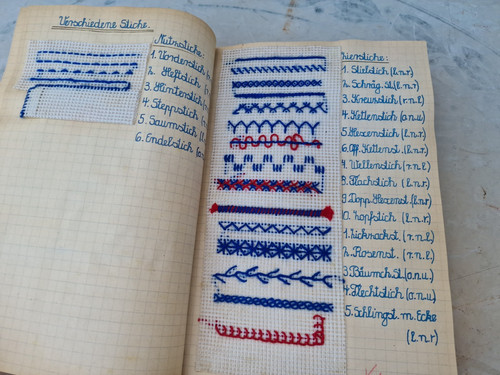 Verschiedene Stiche.
Nutzstiche:
1. Vorderstich
2. Heftstich
3. Hinterstich
4. Steppstich
5. Saumstich
6. Endelstich
Zierstiche:
1. Stielstich (l.n.r)
2. Schräg.St.(l.n.r)
3. Kreuzstich (r.n.l)
4. Kettenstich (o.n.u)
5. Hexenstich (l.n.r)
6. Off. Kettenst. (l.n.r)
7. Wellenstich (r.n.l)
8. Flachstich (l.n.r)
9. Dopp. Hexenst. (l.n.r)
0. Zopfstich (l.n.r)
1. Zickzackst. (r.n.l)
2. Rosenst. (r.n.l)
3. Bäumch.St. (o.n.u)
4. Flechtstich (o.n.u)
5. Schlingst. m. Ecke
(l.n.r)